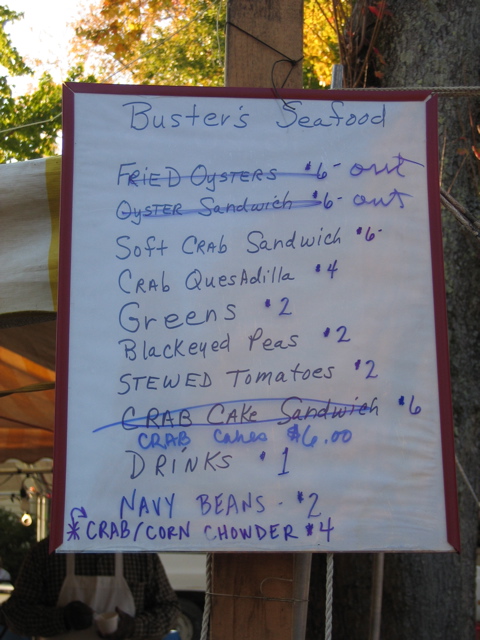 Buster's Seafood
FRIED OYSTERS $6- out
OYSTER Sandwich $6- out
Soft CRAB Sandwich $6-
CRAB QuesAdilla $4
Greens $2
Blackeyed Peas $2
STEWED Tomatoes $2
CRAB CAKe Sandwich $6
CRAB Cakes $6.00
DRINKS $1
NAVY BEANS - $2
* CRAB/CORN CHOWDER $4